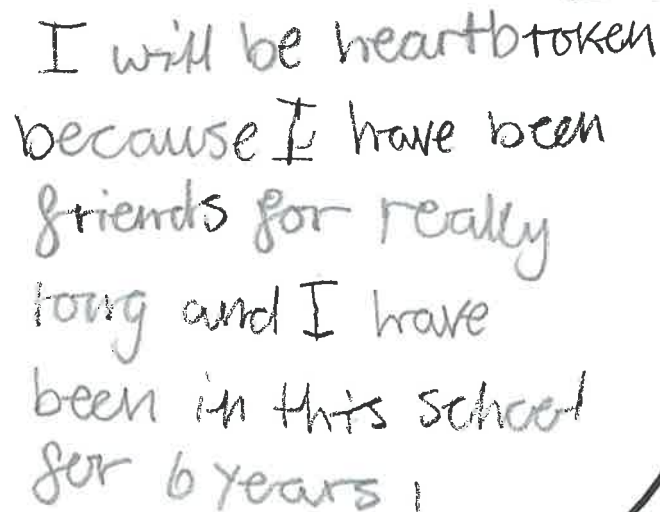 I will be heartbroken
because I have been
friends for really
long and I have
been in this school
for 6 years.